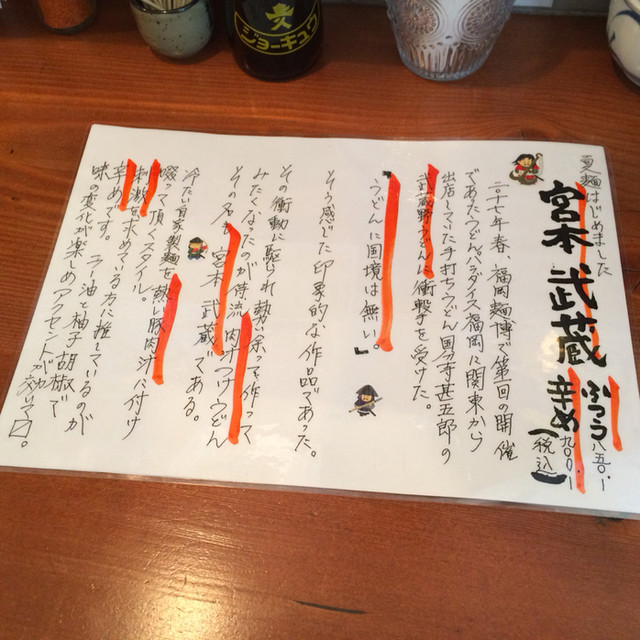 ジョーキュウ
夏麺はじめました
宮本武蔵
ふつう 八五〇.-
辛め 九〇〇.-
(税込)
二〇一七年 春、福岡麺博で第一回の開催
であったうどんパラダイス福岡に関東から
出店していた手打ちうどん国分寺甚五郎の
武蔵野うどんに衝撃を受けた。
『うどんに国境は無い。』
そう感じた印象的な作品であった。
その衝動に駆られ勢い余って作って
みたくなったのが侍流 肉汁つけうどん
その名も 宮本 武蔵 である。
冷たい自家製麺を熱い豚肉汁に付け
啜って頂くスタイル。
刺激を求めている方に推しているのが
辛めです。ラー油と柚子胡椒で
味の変化が楽しめアクセントが効いて〼。